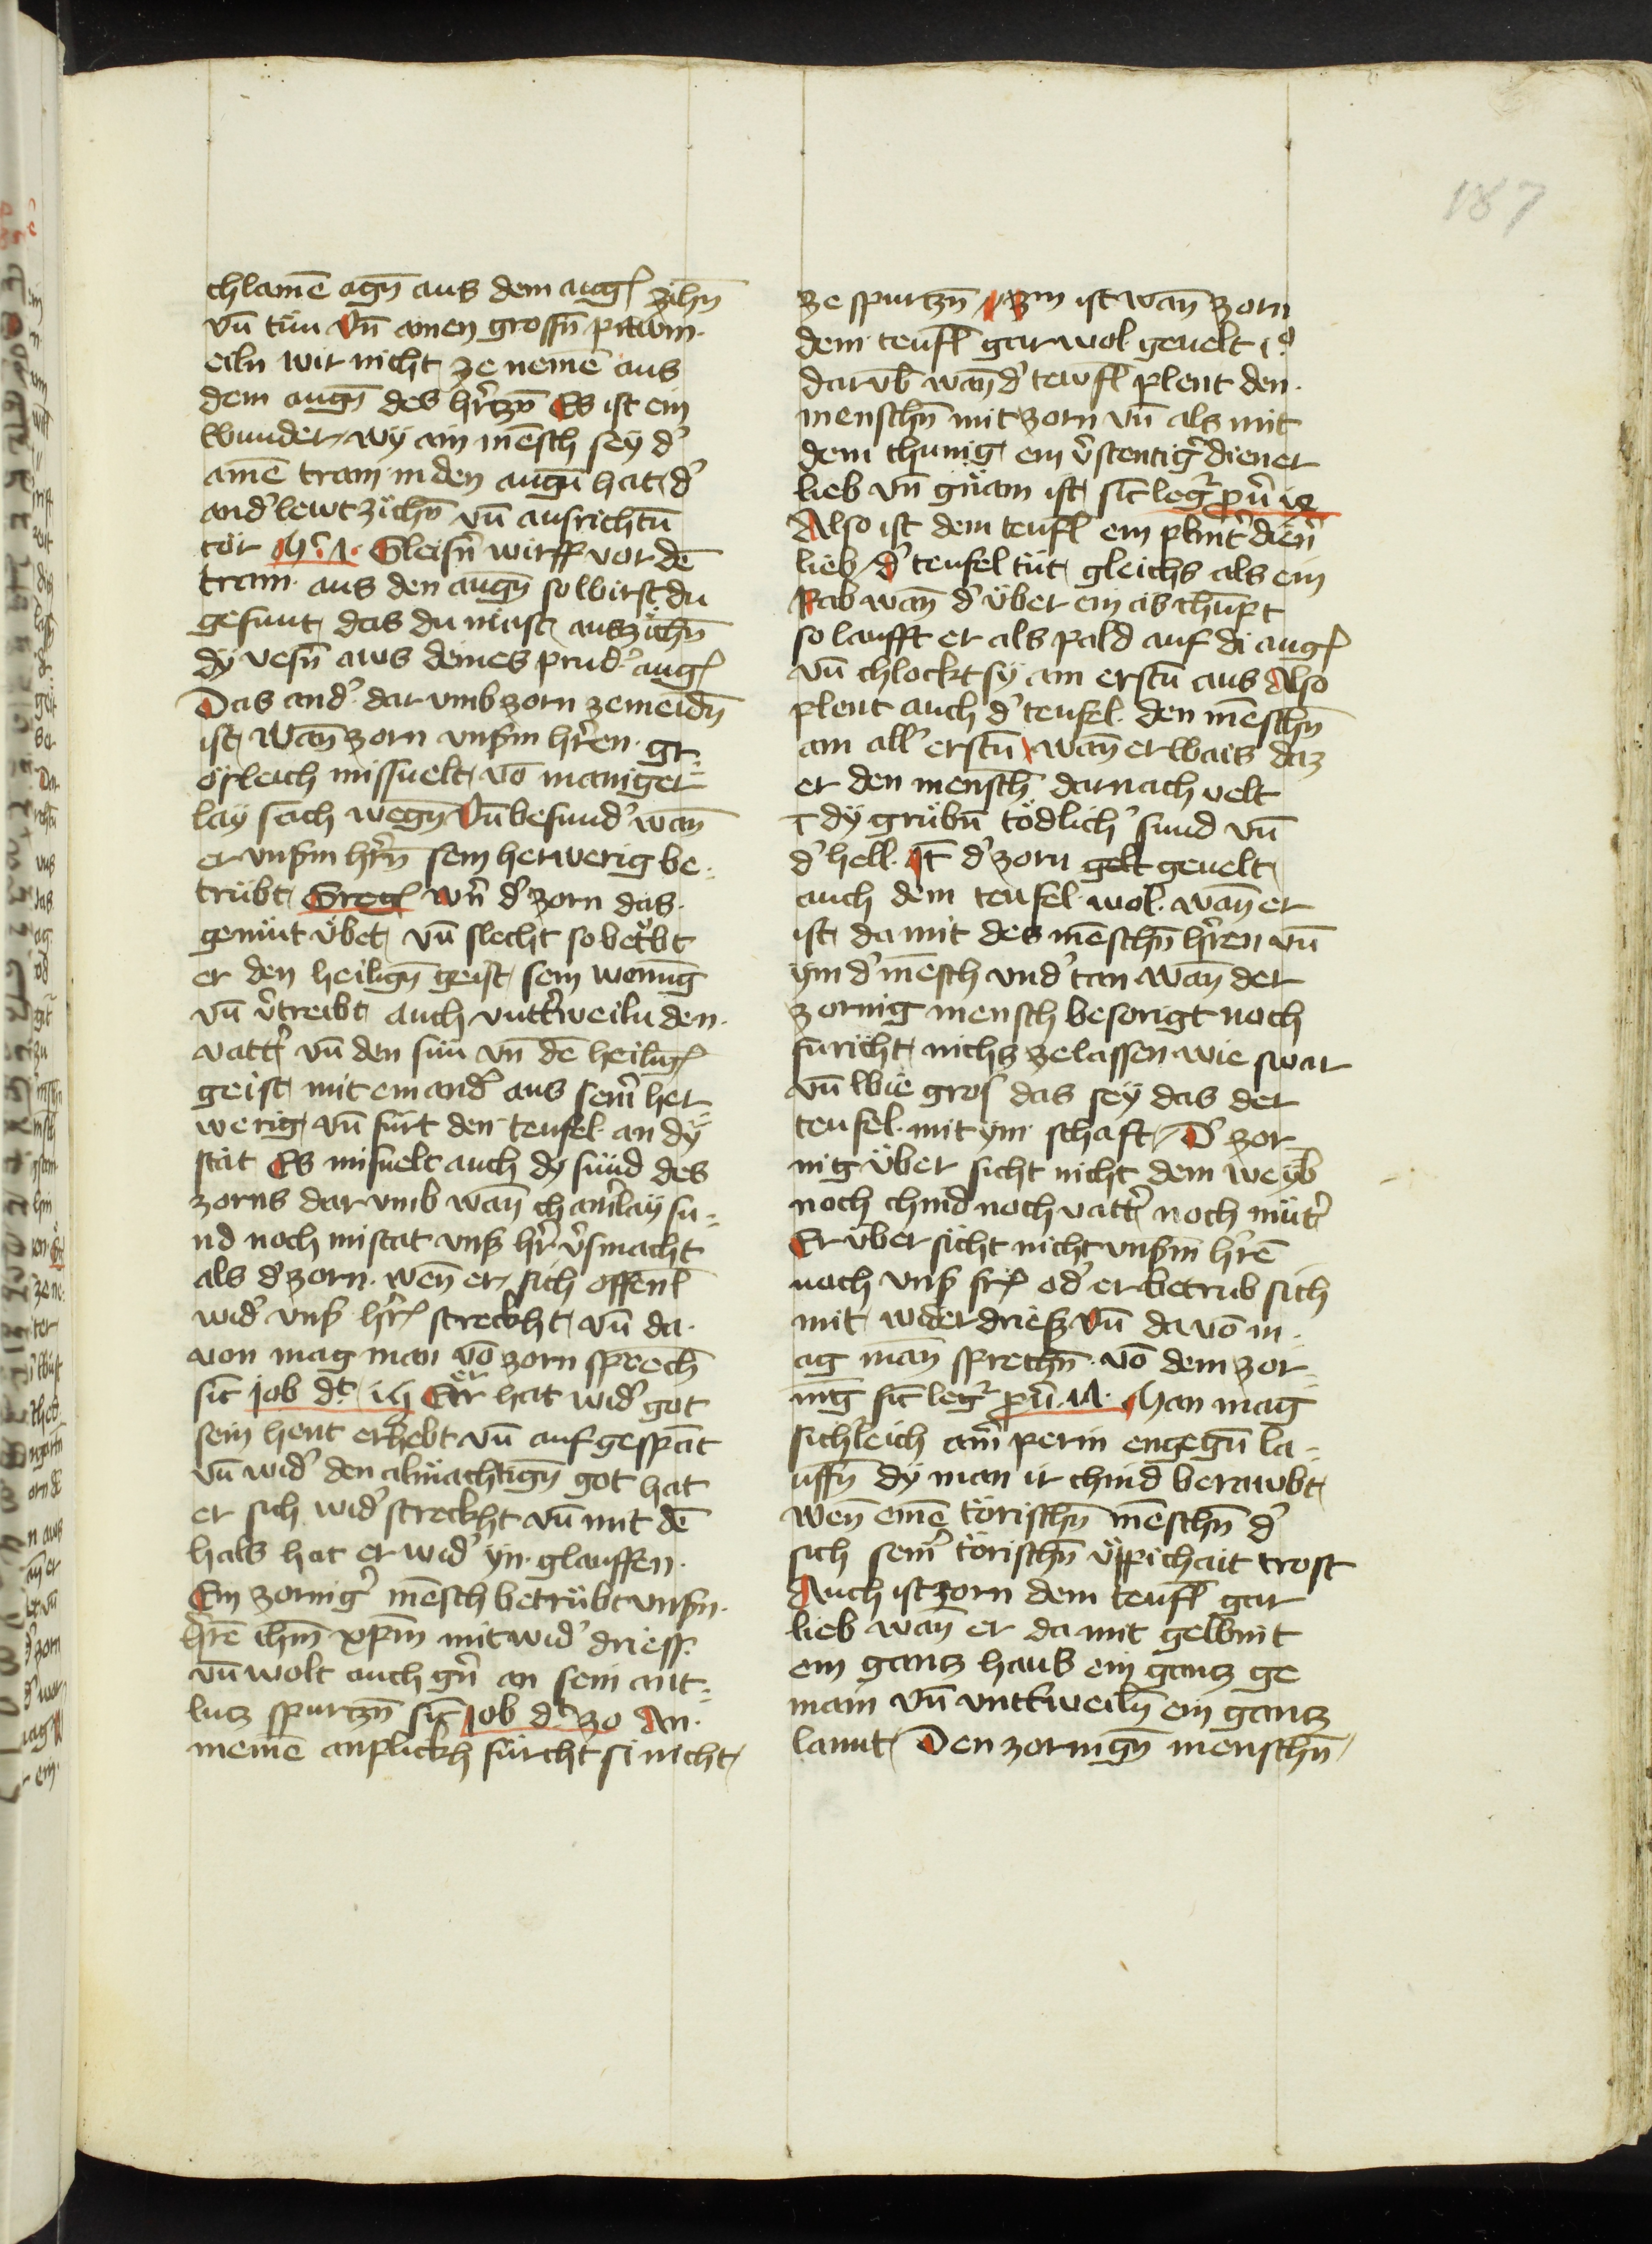 187
chlamē agn̄ aus dem aug zihn̄
vn̄ tün Vn̄ ainen grossn̄ pawm
eiln wir nicht ze nemē aus
dem augn̄ des hr̄tzn̄ Es ist ein
wunder wy ain mēsch sey d'
ainē tram in den augn̄ hat d'
and' lewt zichn̄ vn̄ ausrichtn̄
tör Gleisn' wirff vor dē
tram aus den augn̄ so wirst du
gesunt das du mäst auszichn̄
dy vesn̄ aws deines prud' aug
Das and' dar vmb zorn ze meidn̄
ist Wan̄ zorn vnsm hr̄ren gr
ösleich missuelt vō maniger
lay sach wegn̄ Vn̄ besund' wan̄
er vnsm hr̄rn sein herwerig be
trübt Greg wn̄ d' zorn das
gemüt übet vn̄ slecht so bet'bt
er den heilign̄ geist sein wonūg
vn̄ v'treibt auch vntt'weiln den
vatt' vn̄ den sün vn̄ dē heilig
geist mit einand' aus sein' her
werig vn̄ fürt den teufel an dy
stat Es misuelt auch dy sünd des
zorns dar vmb wan̄ chain'lay su
nd noch mistat vns' hr̄r v'smacht
als d' zorn wen̄ er sich offenl
wid' vns' hr̄r streckht vn̄ da
von mag man vō zorn sprech̄
sic job Er hat wid' got
sein hent erhebt vn̄ auf gespāt
vn̄ wid' den almächtign̄ got hat
er sich wid' streckht vn̄ mit dē
hals hat er wid' yn glauffen
Ein zornig' mēsch betrübt vnsm
hr̄rē ihm̄ xpm̄ mit wid' driess
vn̄ wolt auch gn' an sein ant
lutz spurtzn̄ sic job d' 30 An
meinē anplickh fürcht si nicht
ze spurtzn̄ ist wan̄ zorn
dem teufl gar wol geuelt
darūb wan̄ d' tewfl plent den
menschn̄ mit zorn vn̄ als mit
dem chunig ein v'stentig' diener
lieb vn̄ gnäm ist sic leg'
Also ist dem teufl ein plint' dien'
lieb d' teufel tüt gleichs als ein
Rab wan̄ d' über ein as chūpt
so laufft er als pald auf di aug
vn̄ chlockt sy am erstn̄ aus Also
plent auch d' teufel den mēschn̄
am all' erstn̄ wan̄ er wais daz
er den mensch̄ darnach velt
ī dy grübn̄ tödlich' sund vn̄
d' hell It d' zorn gelt geuelt
auch dem teufel wol wan̄ er
ist da mit des mēschn̄ hr̄ren vn̄
ym d' mēsch vnd' tan wan̄ der
zornig mensch besorigt noch
furicht nichs ze lassen wie swar
vn̄ wie gros das sey das der
teufel mit ym schaft D' zor
nig über sicht nicht dem weyb
noch chind noch vatt' noch müt'
Er über sicht nicht vnsm̄ hr̄rē
noch vns' fr od' er betrub sich
mit widerdriess Vn̄ da vō m
ag man̄ sprechn̄ vō dem zor
nīg sic leg' Man mag
sichleich aim̄ perin engegn̄ la
uffn̄ dy man ir chind berawbt
wen̄ einē törischn̄ mēschn̄ d'
sich sein' törischn̄ üppichait trost
Auch ist zorn dem teufl gar
lieb wan̄ er da mit gewint
ein gantz haus ein gantz ge
main vn̄ vntt'weiln̄ ein gantz
lannt Den zornign̄ menschn̄